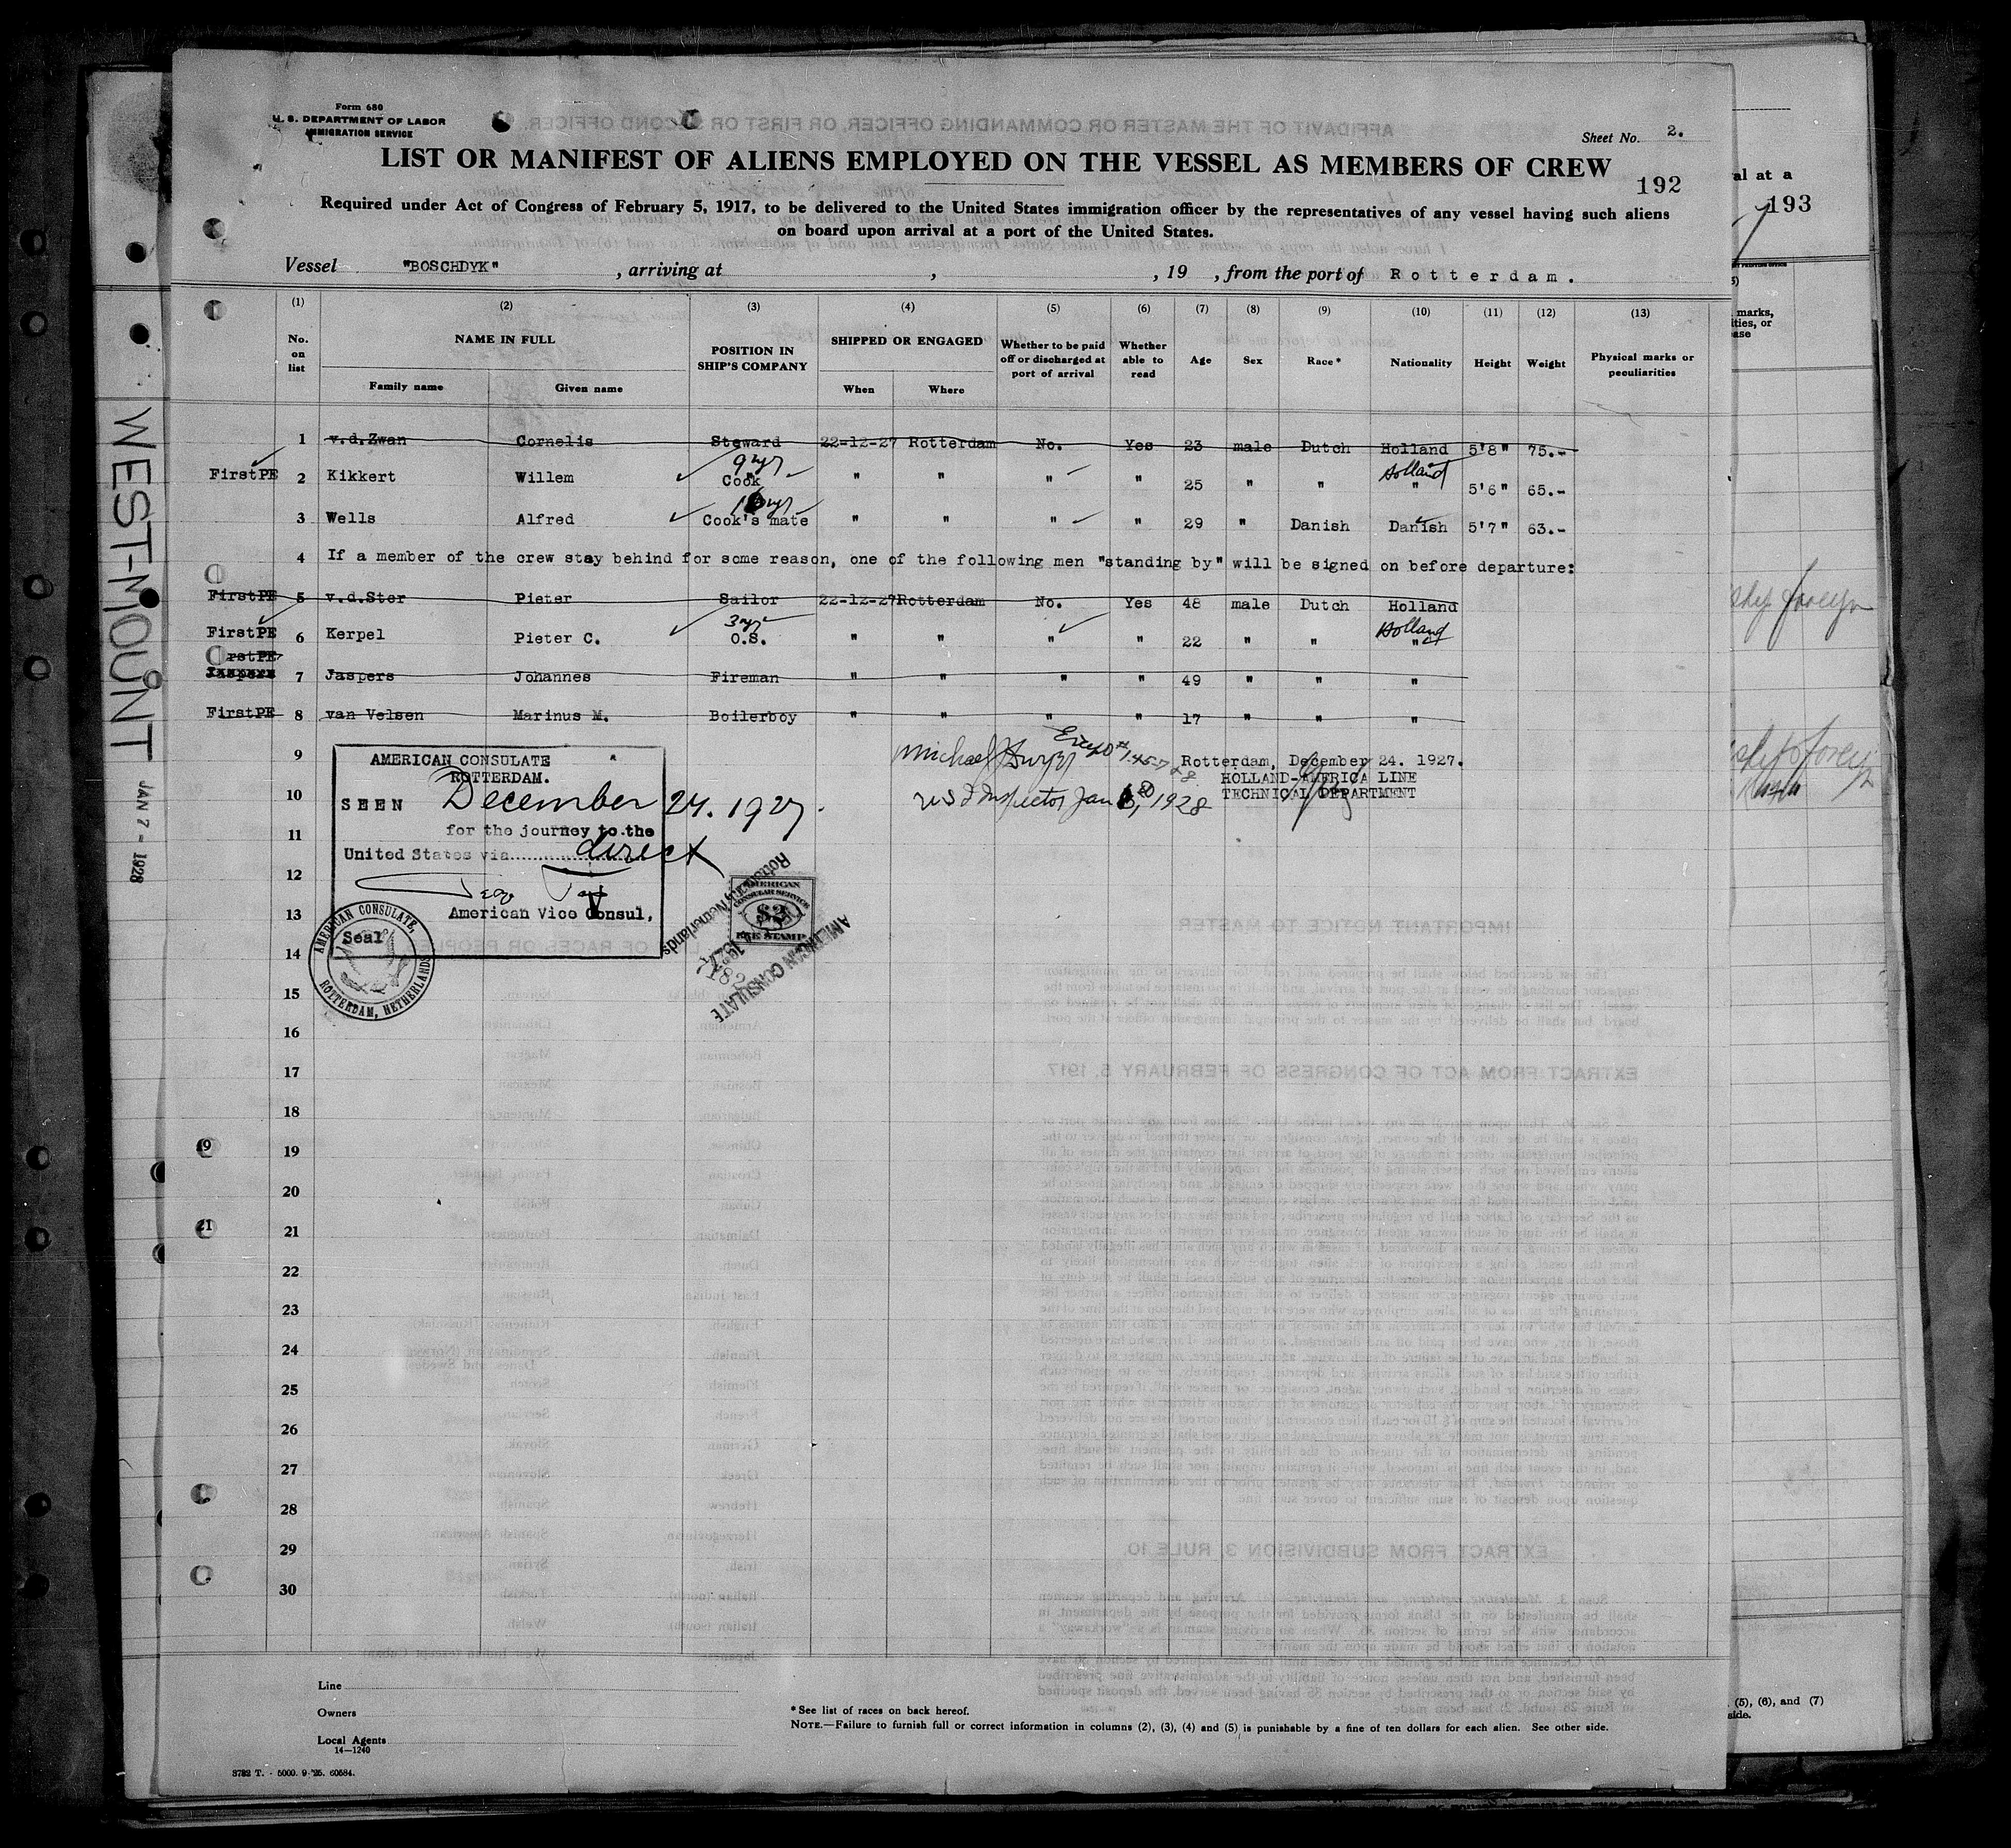 Form 680
U. S. DEPARTMENT OF LABOR
IMMIGRATION SERVICE
Sheet No. 2.
LIST OR MANIFEST OF ALIENS EMPLOYED ON THE VESSEL AS MEMBERS OF CREW
192
Required under Act of Congress of February 5, 1917, to be delivered to the United States immigration officer by the representatives of any vessel having such aliens
on board upon arrival at a port of the United States.
Vessel "BOSCHDYK" , arriving at , , 19 , from the port of Rotterdam.
(1) (2) (3) (4) (5) (6) (7) (8) (9) (10) (11) (12) (13)
No. on list NAME IN FULL Family name Given name POSITION IN SHIP'S COMPANY SHIPPED OR ENGAGED When Where Whether to be paid off or discharged at port of arrival Whether able to read Age Sex Race* Nationality Height Weight Physical marks or peculiarities
1 v.d.Zwan Cornelis Steward 22-12-27 Rotterdam No. Yes 23 male Dutch Holland 5'8" 75.-
First PE 2 Kikkert Willem 9 yrs Cook " " " " 25 " " Holland " 5'6" 65.-
3 Wells Alfred Cook's mate " " " " 29 " Danish Danish 5'7" 63.-
4 If a member of the crew stay behind for some reason, one of the following men "standing by" will be signed on before departure:
First PE 5 v.d.Ster Pieter Sailor 22-12-27 Rotterdam No. Yes 48 male Dutch Holland
First PE 6 Kerpel Pieter C. 3 yr O.S. " " " " 22 " " Holland "
rst PE
Jaspers 7 Jaspers Johannes Fireman " " " " 49 " " "
First PE 8 van Velsen Marinus M. Boilerboy " " " " 17 " " "
9
AMERICAN CONSULATE
ROTTERDAM.
SEEN December 24. 1927.
for the journey to the
United States via direct
American Vice Consul,
Seal
AMERICAN CONSULATE,
ROTTERDAM, NETHERLANDS
AMERICAN
CONSULAR SERVICE
$2
FEE STAMP
AMERICAN CONSULATE
Rotterdam, Netherlands
Michael Dwyer Except # 1-4-5-7 & 8
US I Inspector Jan 6, 1928
Rotterdam, December 24. 1927.
HOLLAND-AMERICA LINE
TECHNICAL DEPARTMENT
10
11
12
13
14
15
16
17
18
19
20
21
22
23
24
25
26
27
28
29
30
Line
Owners
Local Agents
14—1240
3782 T. - 5000. 9-'25. 60584.
* See list of races on back hereof.
NOTE.—Failure to furnish full or correct information in columns (2), (3), (4) and (5) is punishable by a fine of ten dollars for each alien. See other side.
WEST-MOUNT
JAN 7 - 1928
al at a
193
marks,
ities, or
ease
(5), (6), and (7)
side.